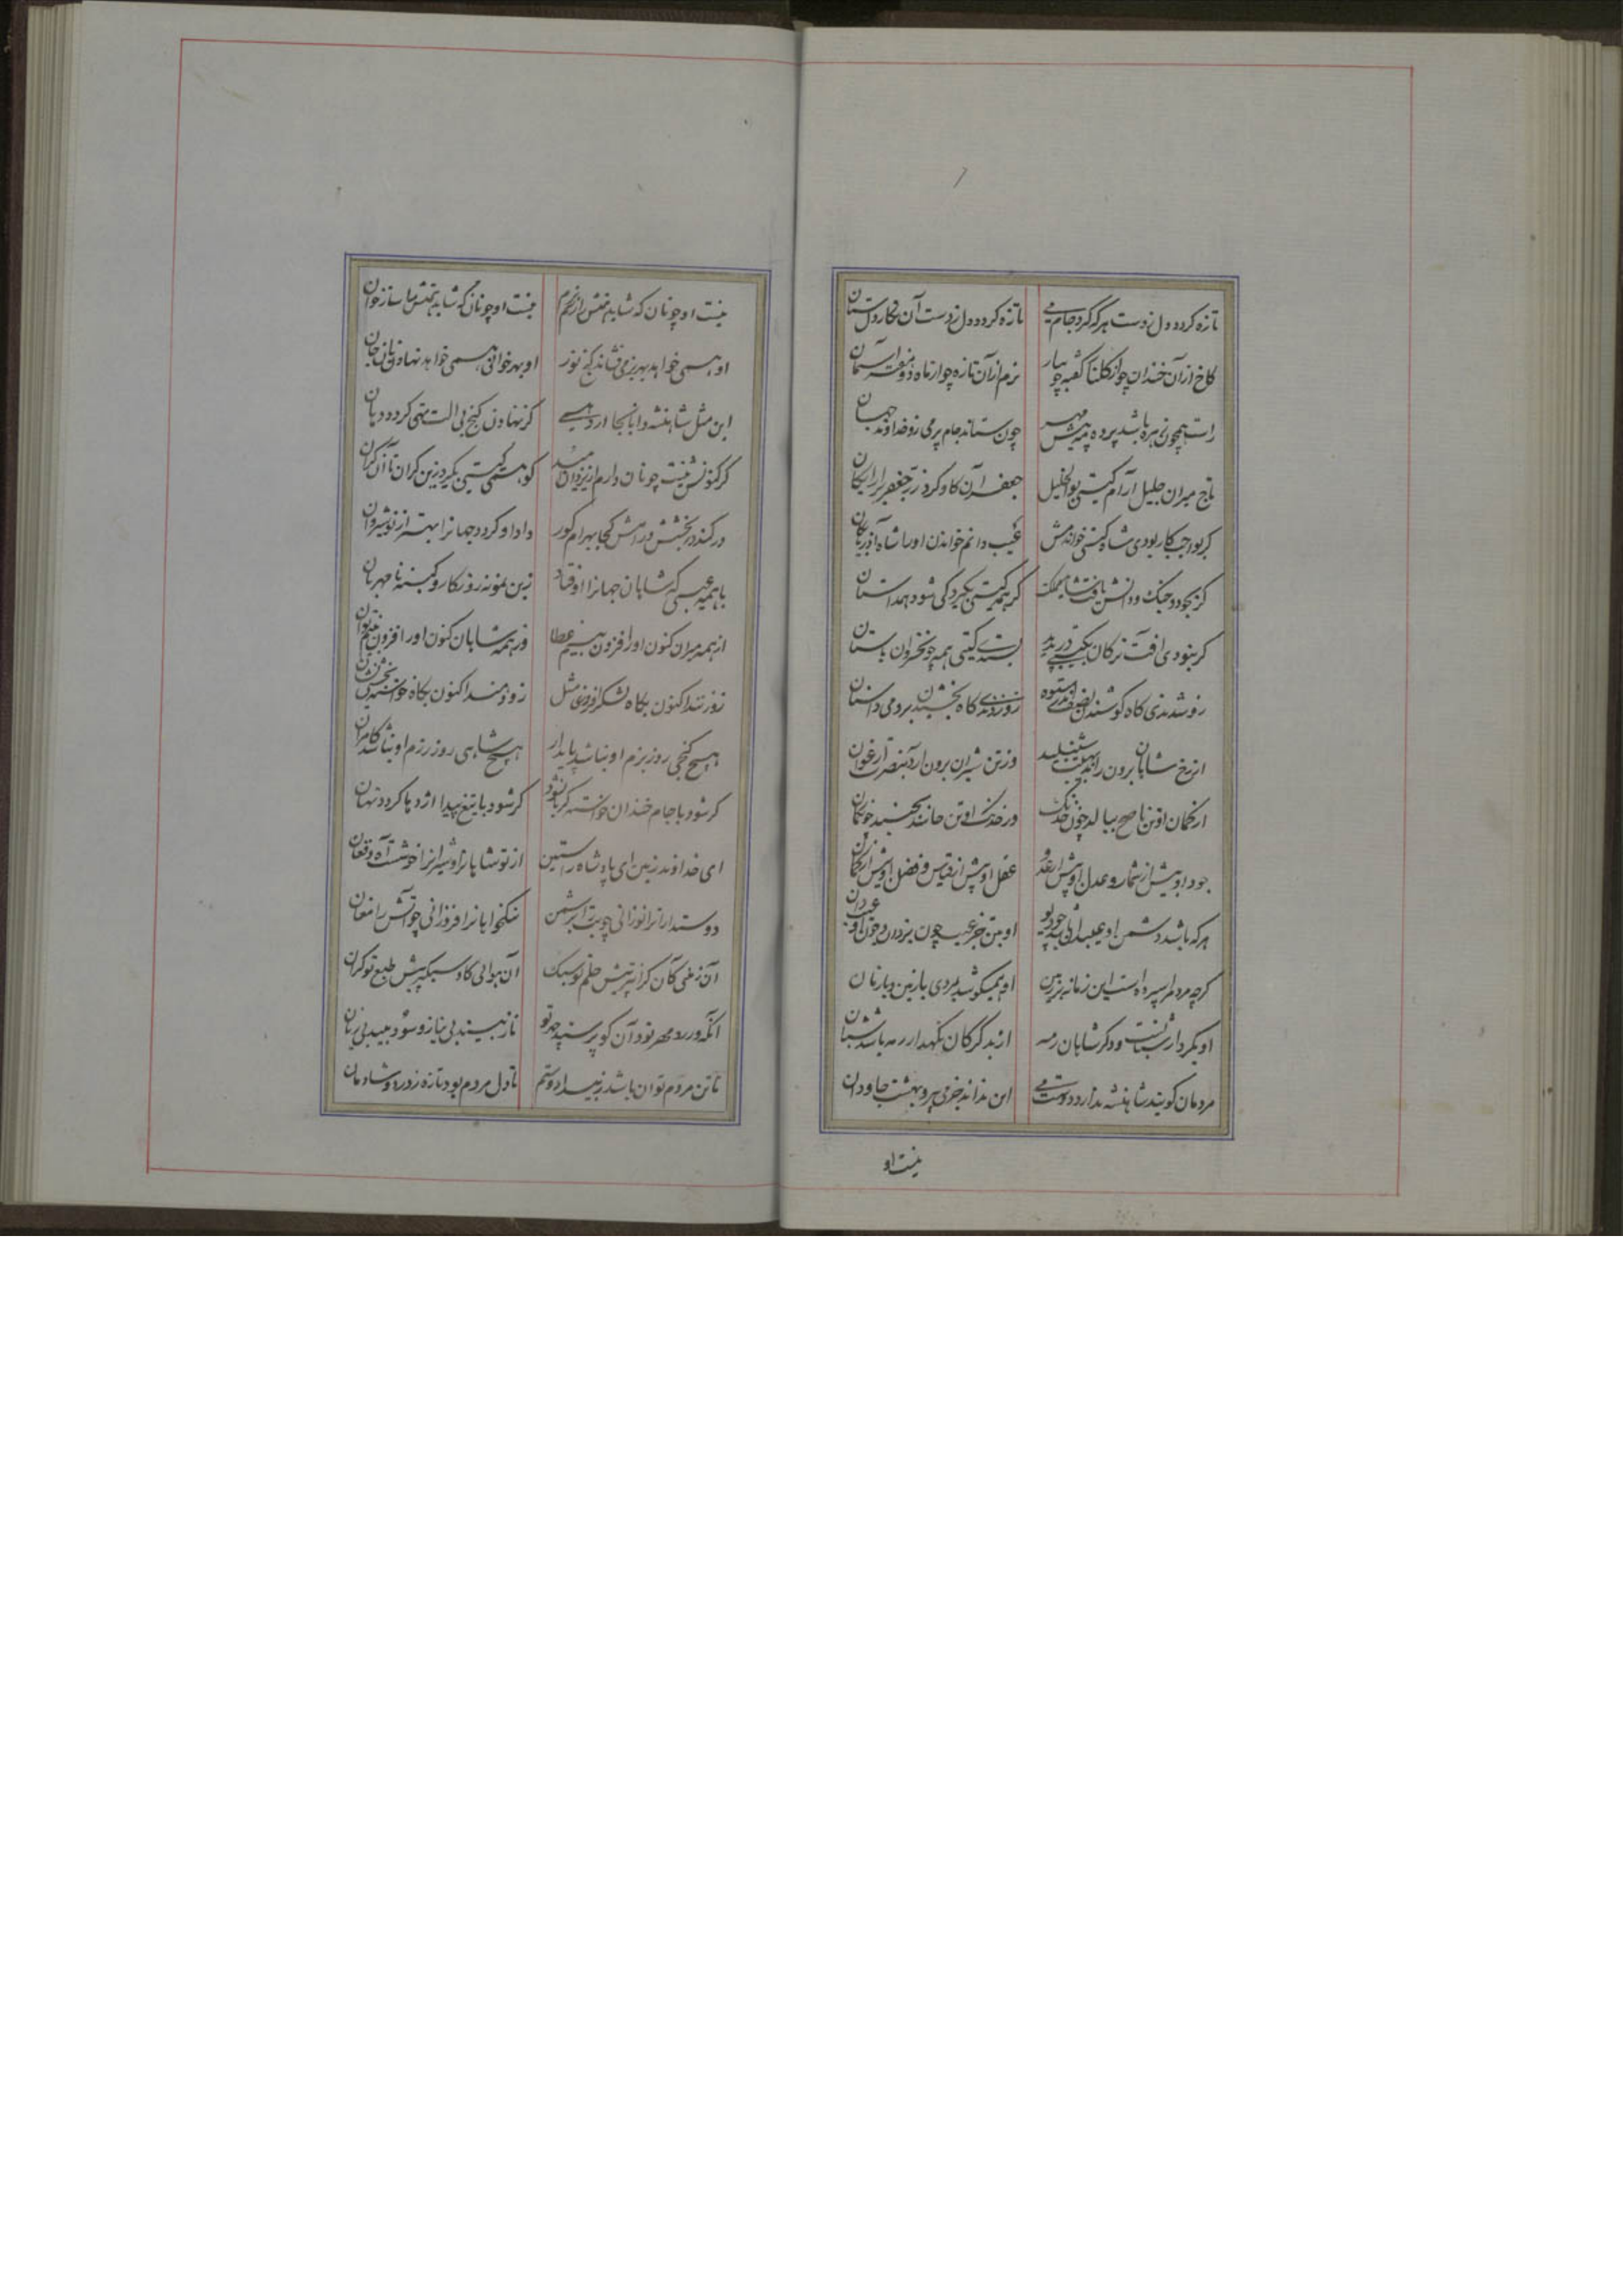 تازه کردد دل زدست هرکه کرد جام می تازه کردد دل زدست آن نکار دلستان
کاخ ازآن خندان چو از کلنار کفیده جویبار بزم ازآن تازه چو از ماه دو هفته آسمان
راست همچون زهره باشد پرده مه پیش مهر چون ستاند جام پر می زو خداوند جهان
تاج میران جلیل آرام کیتی بوالخلیل جعفر آن کاو کرد زر جعفری را رایکان
کر بواجب کار بودی شاه کیتی خواندمش عیب دانم خواندن اورا شاه آذربایکان
کز بجود و جنک و دانش یافت شاید مملکت کر همه کیتی بکیرد کی شود همداستان
کر نبودی آفت ترکان بکیتی در پدید بستدی کیتی همه چون خسروان باستان
رو شدندی کاه کوشیدن ستوه روزدندی کاه بخشیدن برو می داستان
از رخ شاهان برون راند شنبلید وز تن شیران برون آرد بنصرت ارغوان
از کمان او تن ناصح ببالد چون خدنک وز خدنک او تن حاسد بخمد چون کمان
جود او بیش از شمار و عدل او بیش از عدد عقل او بیش از قیاس و فضل او بیش از کمان
هرکه باشد دشمن او عیب
کرچه مردم را سپرده است این زمانه بر زمین او همیکوشد بمردی با زمین و با زمان
او بکردار شبانست و دکر شاهان رمه از بد کرکان نکهدار رمه باشد شبان
مردمان کویند شاهنشه ندارد دوست می این نداند جز می پیر و بهشت جاودان
نیست او
نیست او چونان که شاید نقش از نجم نیست او چونان که شاید نقش
او همی خواهد بهر بزمی فشاند کنج نوز او بهر خوانی همی خواهد نهادن
این مثل شاهنشه دانا بجا آرد همی کز نهادن کنج بی آلت تهی کردد دهان
کر کنونش نیست چونان دارم از یزدان امید کو همی کیتی بکیرد زین کران تا آن کران
درکند در بخشش و رامش کجا بهرام کور داد او کردد جهانرا بهتر از نوشیروان
باهمه عیبی که شاهان جهانرا اوفتاد زین نمونه روزکار و کینه نامهربان
از همه میران کنون اورا فزون بینم عطا وز همه شاهان کنون اورا فزون بینم توان
زور تنند اکنون بکاه لشکر افروزی مثل زو دهند اکنون بکاه خواسته بخشی نشان
هیچ کنجی روز بزم او نباشد پایدار هیچ شاهی روز رزم او نباشد کامران
کر شود با جام خندان خواسته کریان شود کر شود با تیغ پیدا اژدها کردد نهان
ای خداوند زمین ای پادشاه راستین از تو شاهانرا و شیرانرا خوشست آه و فغان
دوستدارانرا نوازانی چو بت را برهمن نیکخواهانرا فروزانی چو آتش را مغان
آن زمینی کآن کرانتر پیش حلم تو سبک آن هوائی کاو سبکتر پیش طبع تو کران
آنکه ورزد مهر تو و آن کو پرستد چهر تو ناز بیند بی نیاز و سود بیند بی زیان
تا تن مردم نوان باشد ز بیداد و ستم تا دل مردم بود تازه ز درد و شادمان